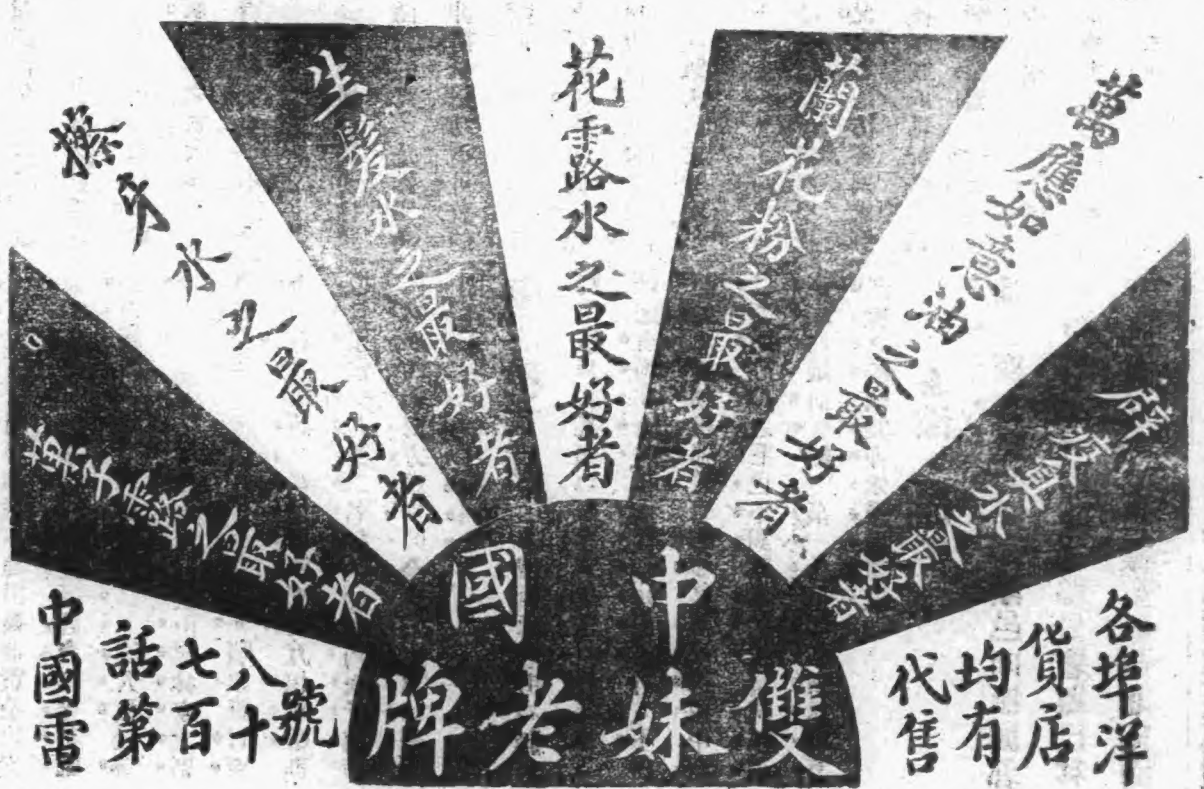 辟疫臭水之最好者
萬應如意油之最好者
蘭花粉之最好者
花露水之最好者
生髮水之最好者
擦牙水之最好者
菓子露之最好者。
中國
雙妹老牌
各埠洋
貨店
均有
代售
中國電
話第
七百
八十
號